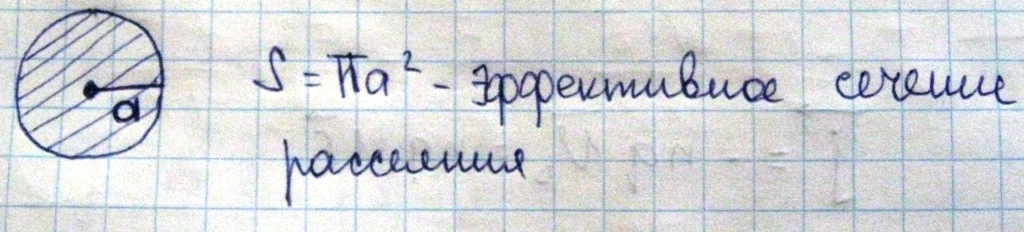 a
S = πa² - эффективное сечение
рассеяния